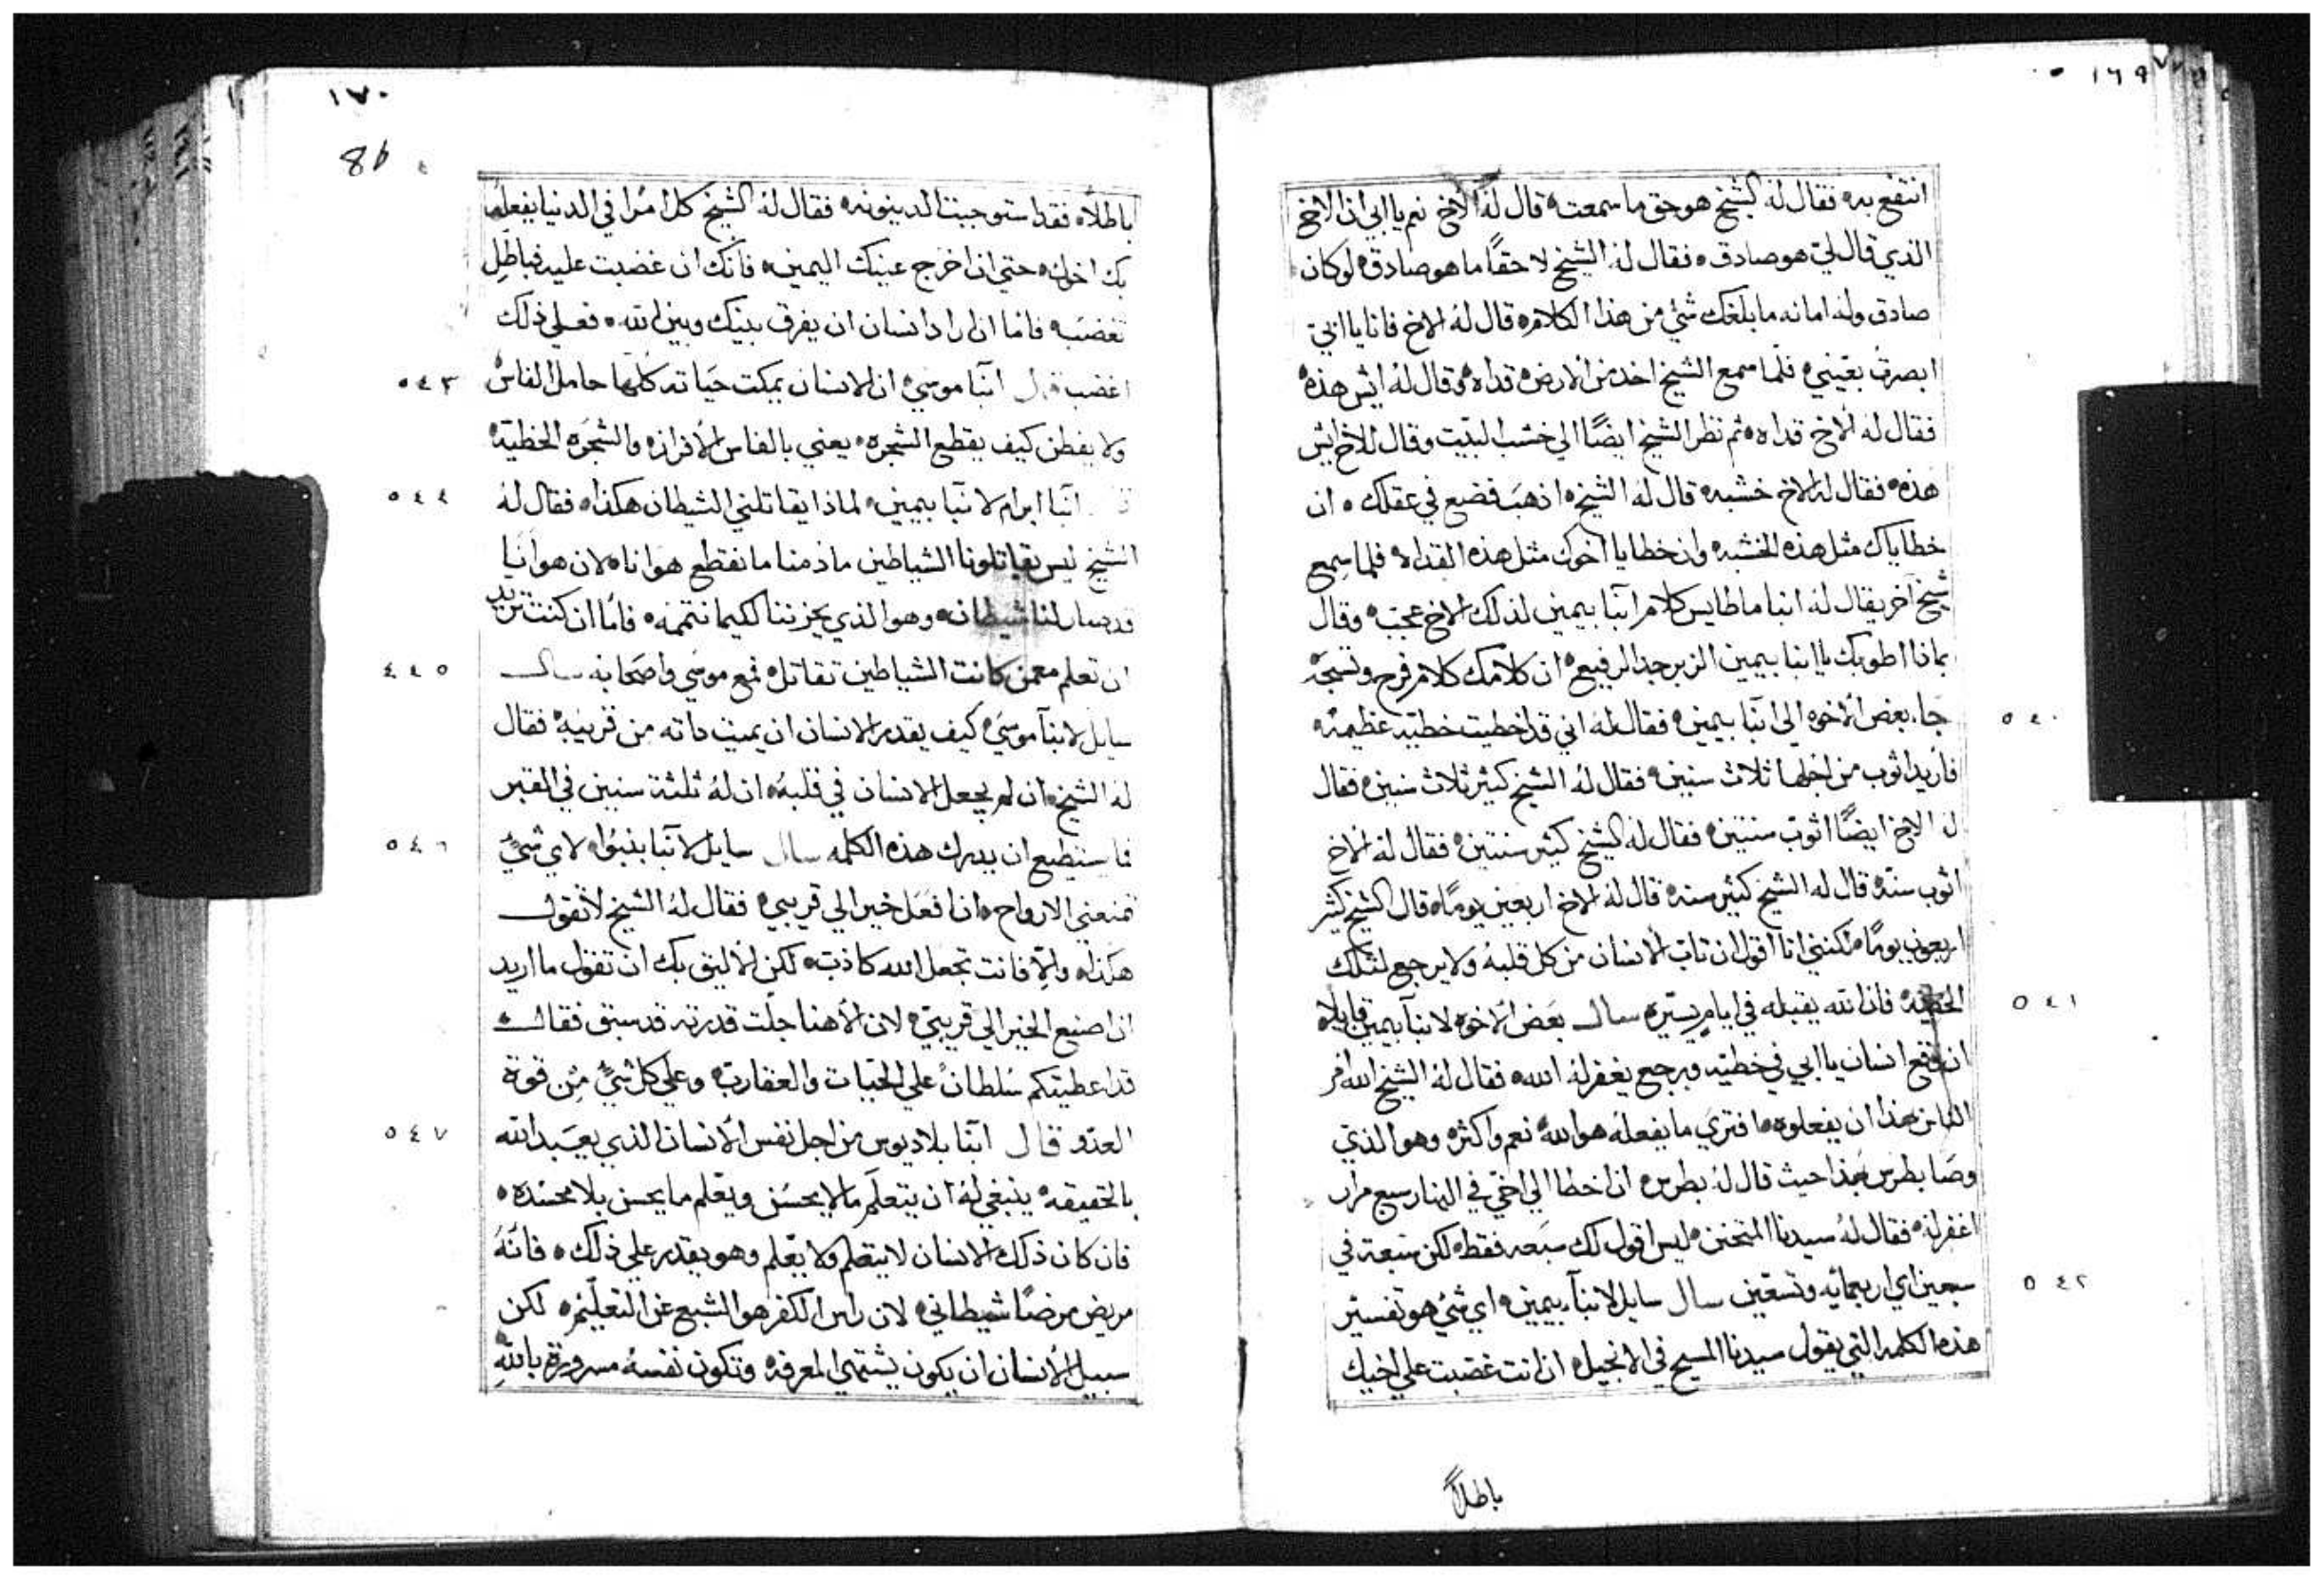 ١٦٩
انتفع به فقال له الشيخ هو حق ما سمعت قال له الاخ نعم يا ابي ان الاخ
الذي قال لي هو صادق فقال له الشيخ لا حقًا ما هو صادق لو كان
صادق وله امانه ما بلغك شي من هذا الكلام قال له الاخ فانا يا ابي
ابصرت بعيني فلما سمع الشيخ اخذ من الارض قداه وقال له ايش هذه
فقال له الاخ قداه ثم نظر الشيخ ايضًا الي خشب البيت وقال للاخ ايش
هذه فقال له الاخ خشبه قال له الشيخ اذهب فضع في عقلك ان
خطاياك مثل هذه الخشبه وان خطايا اخوك مثل هذه القداه فلما سمع
شيخ آخر يقال له انبا ماطايس كلام انبا بيمين لذلك الاخ عجب وقال
بماذا اطوبك يا ابنا بيمين الزبرجد الرفيع ان كلامك كلام فرح وتسبحه
٥٤٠ جاء بعض الاخوه الي انبا بيمين فقال له اني قد اخطيت خطيه عظيمه
فاريد اتوب من اجلها ثلاث سنين فقال له الشيخ كثير ثلاث سنين فقال
له الاخ ايضًا اتوب سنتين فقال له الشيخ كثير سنتين فقال له الاخ
اتوب سنة قال له الشيخ كثير سنه قال له الاخ اربعين يومًا قال الشيخ كثير
اربعون يومًا لكنني انا اقول ان تاب الانسان من كل قلبه ولا يرجع لتلك
٥٤١ الخطيه فان الله يقبله في ايام يسيره سال بعض الاخوه لانبا بيمين قايلا
ان وقع انسان يا ابي في خطيه ويرجع يغفر له الله فقال له الشيخ الله امر
الناس بهذا ان يفعلوه افتري ما يفعله هو الله نعم واكثر وهو الذي
وصا بطرس بهذا حيث قال له بطرس ان اخطا الي اخي في النهار سبع مرار
اغفر له فقال له سيدنا المتحنن ليس اقول لك سبعه فقط لكن سبعة في
٥٤٢ سبعين اي اربعمائه وتسعين سال سايل لانبا بيمين اي شي هو تفسير
هذه الكلمه التي يقول سيدنا المسيح في الانجيل ان انت غضبت علي اخيك
باطلاً
١٧٠
باطلاً فقد استوجبت الدينونه فقال له الشيخ كل امرا في الدنيا يفعله
بك اخوك حتي ان اخرج عينك اليمين فانك ان غضبت عليه فباطل
تغضب فاما ان اراد انسان ان يفرق بينك وبين الله فعلي ذلك
٥٤٣ اغضب قال انبا موسي ان الانسان يمكت حياته كلها حامل الفاس
ولا يفطن كيف يقطع الشجره يعني بالفاس الافراز والشجره الخطيه
٥٤٤ انبا ابرام لانبا بيمين لماذا يقاتلني الشيطان هكذا فقال له
الشيخ ليس يقاتلونا الشياطين ما دمنا ما نقطع هوانا لان هوانا
قد صار لنا شيطان وهو الذي يحزننا لكيما نتممه فاما ان كنت تريد
٤٤٥ ان تعلم مع من كانت الشياطين تقاتل فمع موسي واصحابه سال
سايل لانبا موسي كيف يقدر الانسان ان يميت داته من قريبه فقال
له الشيخ ان لم يجعل الانسان في قلبه ان له ثلثة سنين في القبر
٥٤٦ فما يستطيع ان يدرك هذه الكلمه سال سايل لانبا لاي شي
تمنعني الارواح ان افعل خير الي قريبي فقال له الشيخ لا تقول
هكذا والا فانت تجعل الله كاذب لكن الاليق بك ان تقول ما اريد
ان اصنع الخير الي قريبي لان الاهنا جلت قدرته قد سبق فقال
قد اعطيتكم سلطان علي الحيات والعقارب وعلي كل شي من قوة
٥٤٧ العدو قال انبا بلاديوس من اجل نفس الانسان الذي يعبد الله
بالحقيقه ينبغي له ان يتعلم ما لا يحسن ويعلم ما يحسن بلا محسده
فان كان ذلك الانسان لا يتعلم ولا يعلم وهو يقدر علي ذلك فانه
مريض مرضًا شيطاني لان راس الكفر هو الشبع من التعليم لكن
سبيل الانسان ان يكون يشتهي المعرفه وتكون نفسه مسروره بالله